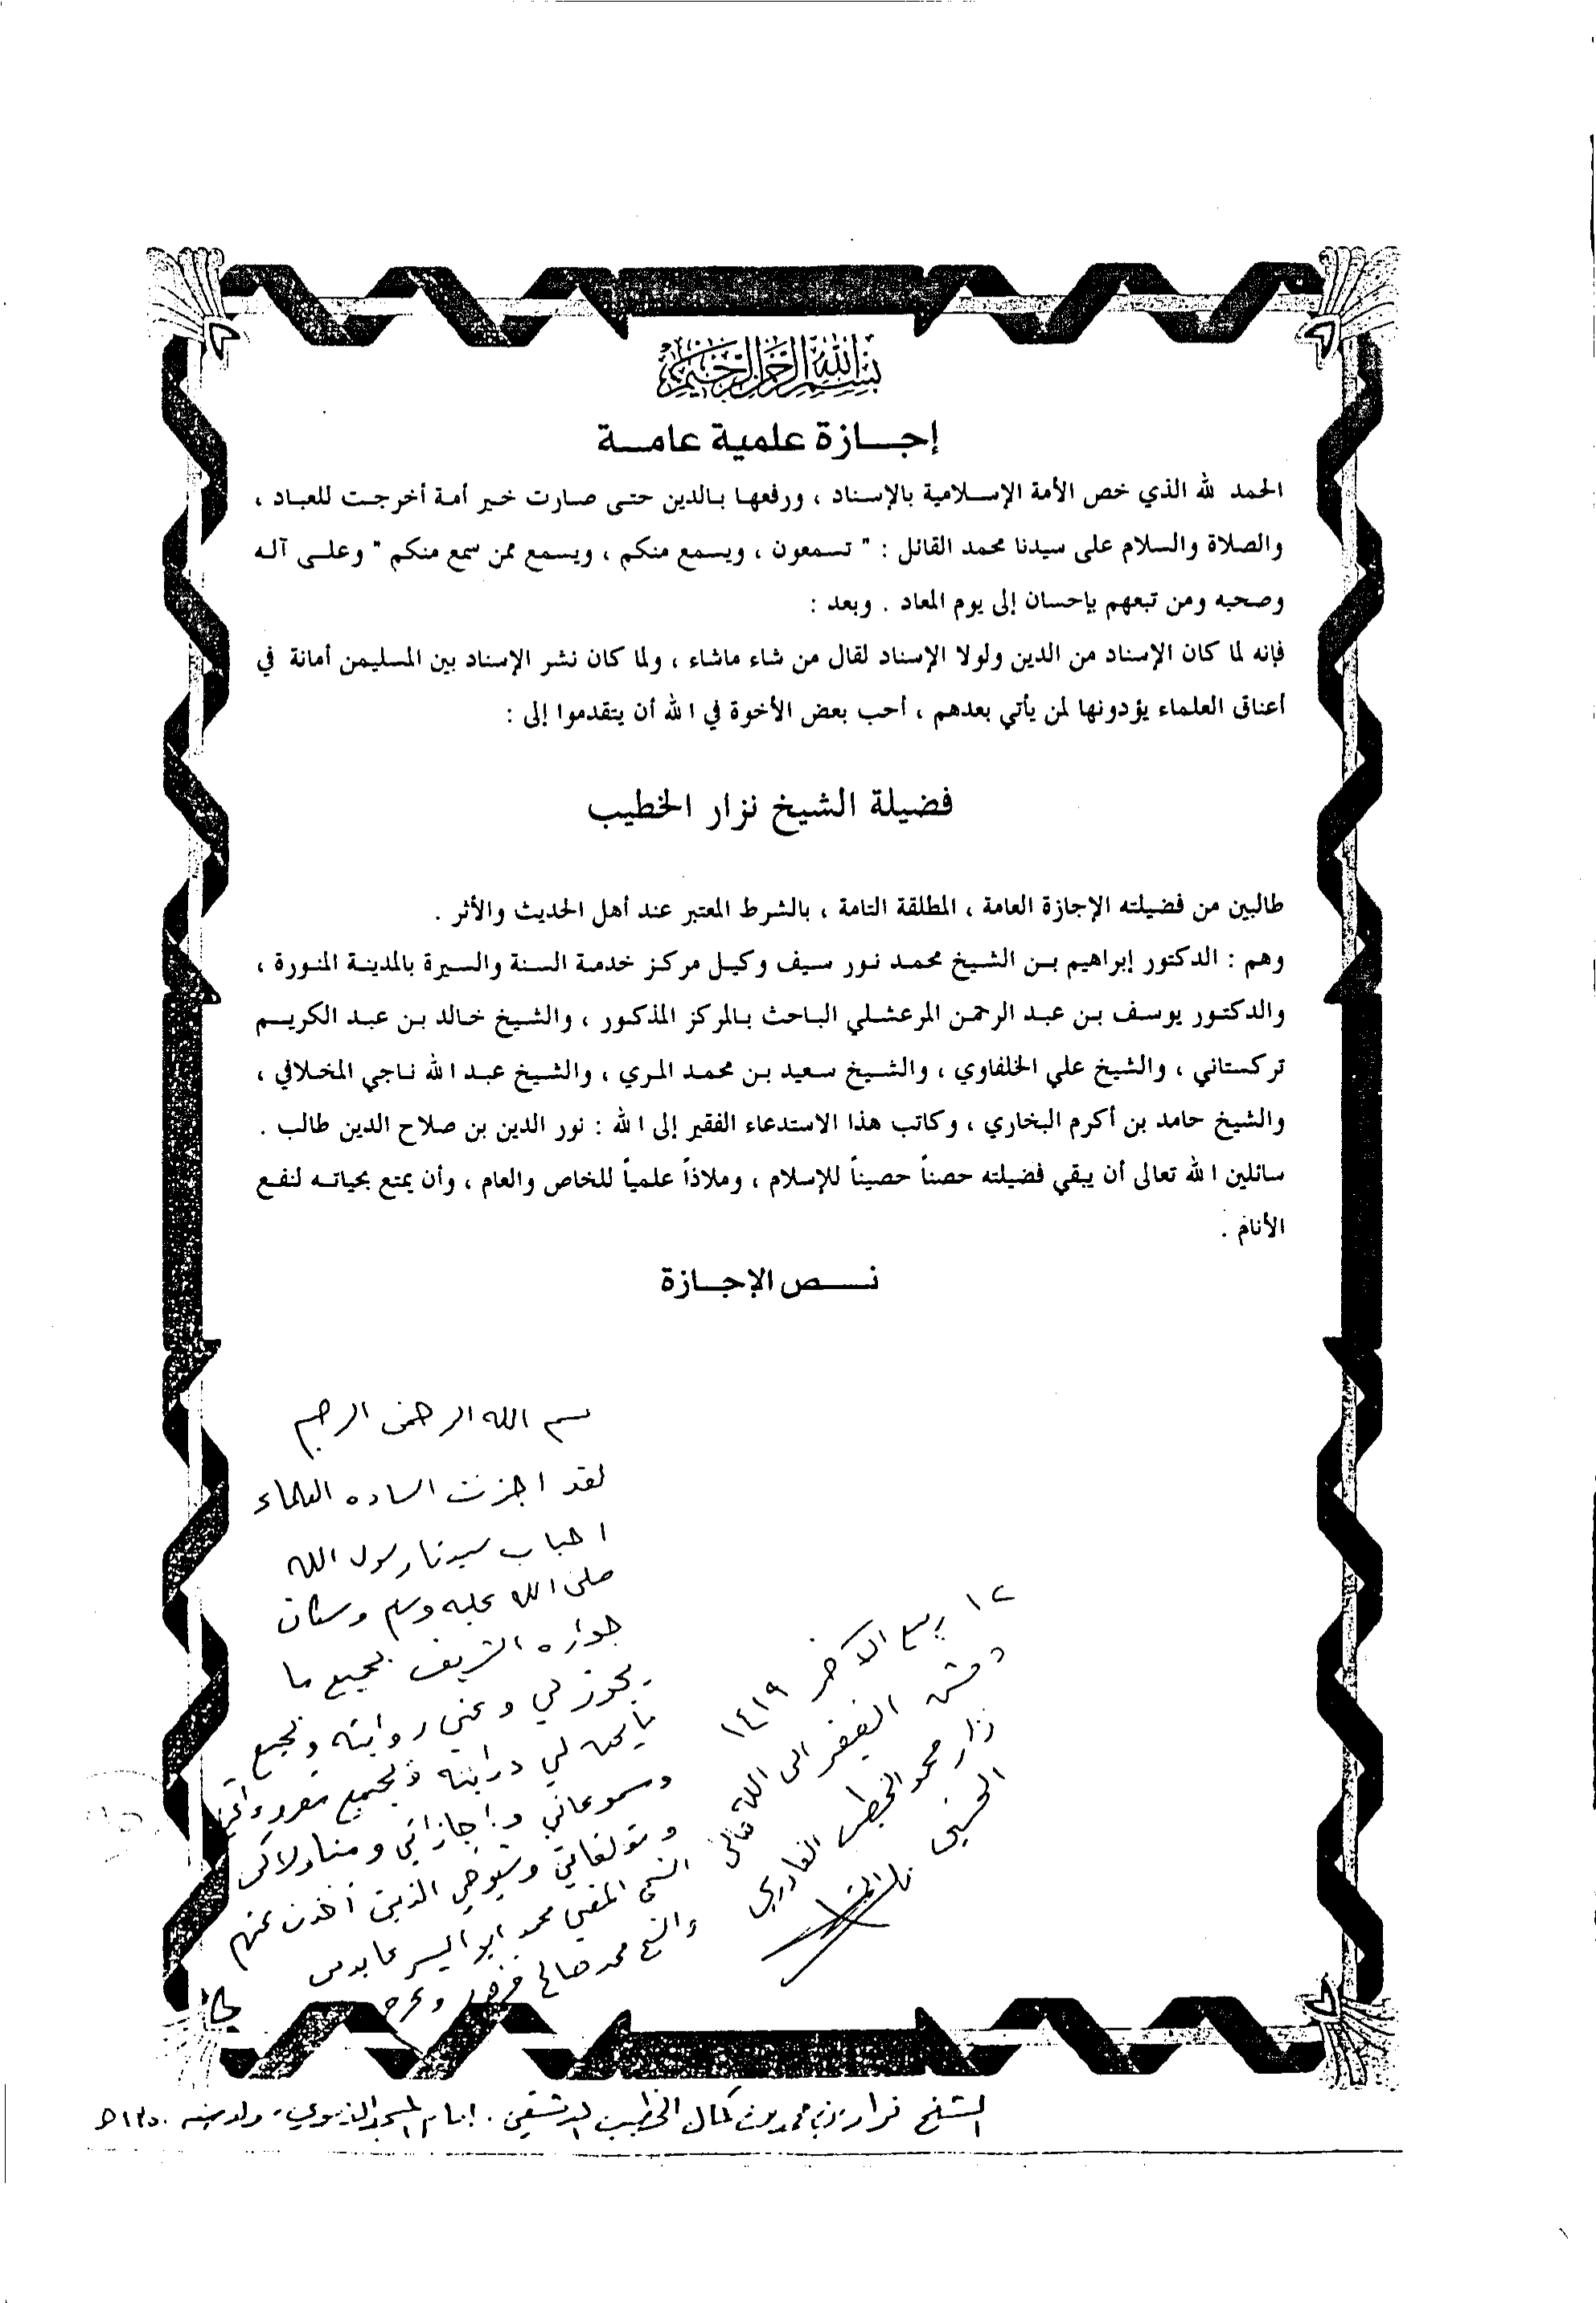 بسم الله الرحمن الرحيم
إجازة علمية عامة
الحمد لله الذي خص الأمة الإسلامية بالإسناد ، ورفعها بالدين حتى صارت خير أمة أخرجت للعباد ،
والصلاة والسلام على سيدنا محمد القائل : " تسمعون ، ويسمع منكم ، ويسمع ممن سمع منكم " وعلى آله
وصحبه ومن تبعهم بإحسان إلى يوم المعاد . وبعد :
فإنه لما كان الإسناد من الدين ولولا الإسناد لقال من شاء ماشاء ، ولما كان نشر الإسناد بين المسليمن أمانة في
أعناق العلماء يؤدونها لمن يأتي بعدهم ، أحب بعض الأخوة في الله أن يتقدموا إلى :
فضيلة الشيخ نزار الخطيب
طالبين من فضيلته الإجازة العامة ، المطلقة التامة ، بالشرط المعتبر عند أهل الحديث والأثر .
وهم : الدكتور إبراهيم بن الشيخ محمد نور سيف وكيل مركز خدمة السنة والسيرة بالمدينة المنورة ،
والدكتور يوسف بن عبد الرحمن المرعشلي الباحث بالمركز المذكور ، والشيخ خالد بن عبد الكريم
تركستاني ، والشيخ علي الخلفاوي ، والشيخ سعيد بن محمد المري ، والشيخ عبد الله ناجي المخلافي ،
والشيخ حامد بن أكرم البخاري ، وكاتب هذا الاستدعاء الفقير إلى الله : نور الدين بن صلاح الدين طالب .
سائلين الله تعالى أن يبقي فضيلته حصناً حصيناً للإسلام ، وملاذاً علمياً للخاص والعام ، وأن يمتع بحياته لنفع
الأنام .
نص الإجازة
بسم الله الرحمن الرحيم
لقد اجزت الساده العلماء
احباب سيدنا رسول الله
صلى الله عليه وسلم وسكان
جواره الشريف بجميع ما
يجوز لي وعني روايته وبجميع
ما يصح لي درايته وبجميع مقروءاتي
ومسموعاتي وإجازاتي ومناولاتي
ومؤلفاتي وشيوخي الذين أخذت عنهم
الشيخ المفتي محمد ابو اليسر عابدين
والشيخ محمد صالح فرفور
١٢ ربيع الآخر ١٤١٩
دمشق الفقير الى الله تعالى
نزار محمد الخطيب القادري
الحسني
الشيخ نزار بن محمد بن كمال الخطيب الدمشقي . إمام المسجد الأموي ، ولد سنة ١٣٥٠ هـ